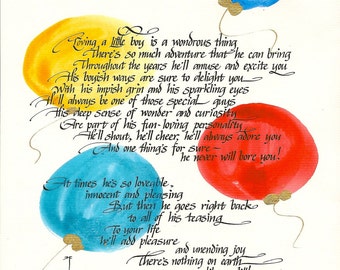 Loving a little boy is a wondrous thing
There's so much adventure that he can bring
Throughout the years he'll amuse and excite you
His boyish ways are sure to delight you
With his impish grin and his sparkling eyes
He'll always be one of those special guys
His deep sense of wonder and curiosity
Are part of his fun-loving personality
He'll shout, he'll cheer, he'll always adore you
And one thing's for sure -
he never will bore you!
At times he's so loveable,
innocent and pleasing
But then he goes right back
to all of his teasing
To your life
He'll add pleasure
and unending joy
There's nothing on earth